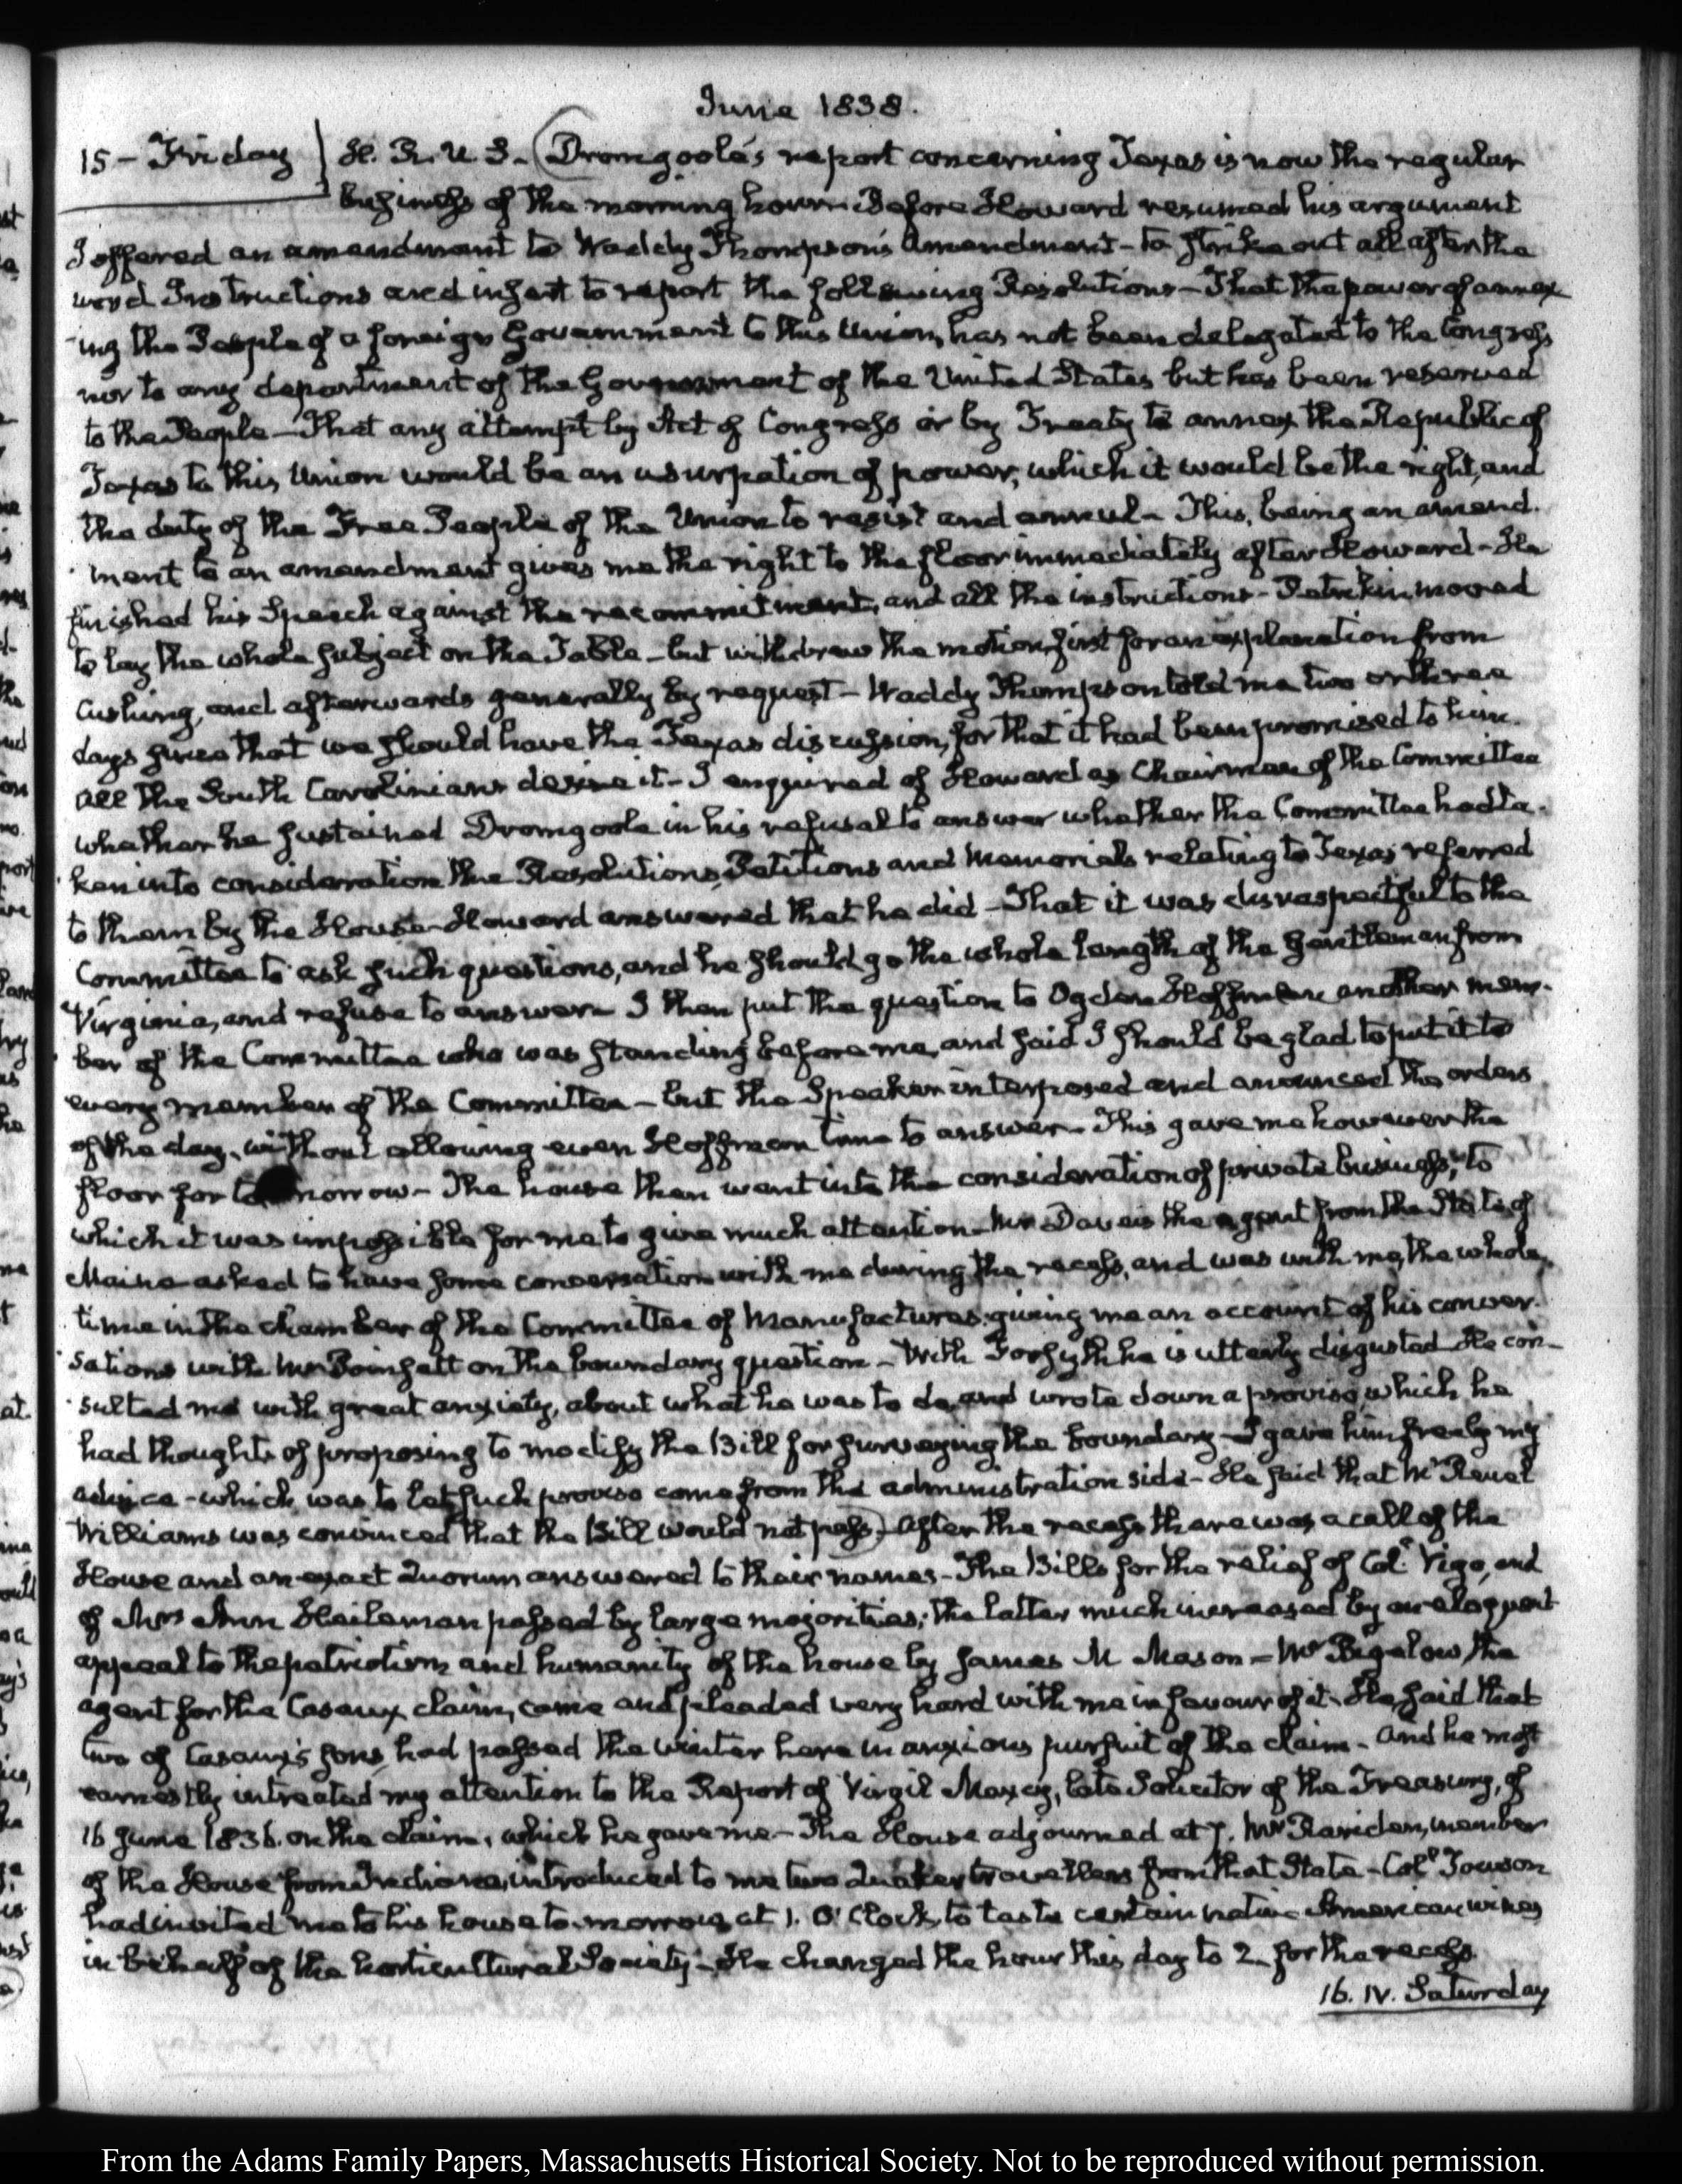 June 1838.
15 – Friday
H. R. U. S. – (Dromgoole's report concerning Texas is now the regular
business of the morning hour – Before Howard resumed his argument
I offered an amendment to Waddy Thompson's Amendment – to strike out all after the
word Instructions and insert to report the following Resolutions – That the power of annex
ing the People of a foreign Government to this Union, has not been delegated to the Congress
nor to any department of the Government of the United States but has been reserved
to the People – That any attempt by Act of Congress or by Treaty to annex the Republic of
Texas to this Union would be an usurpation of power, which it would be the right, and
the duty of the Free People of the Union to resist and annul – This, being an amend-
ment to an amendment gives me the right to the floor immediately after Howard – He
finished his Speech against the recommitment, and all the instructions – Petrikin moved
to lay the whole subject on the Table – but withdrew the motion, first for an explanation from
Cushing, and afterwards generally by request – Waddy Thompson told me two or three
days since that we should have the Texas discussion, for that it had been promised to him.
All the South Carolinians desire it – I enquired of Howard as Chairman of the Committee
whether he sustained Dromgoole in his refusal to answer whether the Committee had ta-
ken into consideration the Resolutions, Petitions and Memorials relating to Texas referred
to them by the House – Howard answered that he did – That it was disrespectful to the
Committee to ask such questions, and he should go the whole length of the Gentleman from
Virginia, and refuse to answer – I then put the question to Ogden Hoffman another mem-
ber of the Committee who was standing before me, and said I should be glad to put it to
every member of the Committee – but the Speaker interposed and anounced the orders
of the day, without allowing even Hoffman time to answer – This gave me however the
floor for to morrow – The house then went into the consideration of private business, to
which it was impossible for me to give much attention – Mr Daveis the agent from the State of
Maine asked to have some conversation with me during the recess, and was with me, the whole
time in the chamber of the Committee of Manufactures, giving me an account of his conver-
sations with Mr Poinsett on the boundary question – With Forsyth he is utterly disgusted – He con-
sulted me with great anxiety, about what he was to do, and wrote down a proviso, which he
had thoughts of proposing to modify the Bill for surveying the boundary – I gave him freely my
advice – which was to let such proviso come from the administration side – He said that Mr Reuel
Williams was convinced that the Bill would not pass) – After the recess there was a call of the
House and an exact Quorum answered to their names – The Bills for the relief of Coll. Vigo, and
of Mrs Ann Heileman passed by large majorities; the latter much increased by an eloquent
appeal to the patriotism and humanity of the house by James M Mason – Mr Bigelow, the
agent for the Casaux claim, came and pleaded very hard with me in favour of it. He said that
two of Casaux's sons, had passed the winter here in anxious pursuit of the claim – and he most
earnestly intreated my attention to the Report of Virgil Maxcy, late Solicitor of the Treasury, of
16 June 1836. on the claim, which he gave me – The House adjourned at 7. Mr Rariden, member
of the House from Indiana, introduced to me two Quaker travellers from that State – Coll Towson
had invited me to his house to-morrow at 1. O'Clock, to taste certain native American wines
in behalf of the horticultural Society – He changed the hour this day to 2. for the recess.
16. IV. Saturday
From the Adams Family Papers, Massachusetts Historical Society. Not to be reproduced without permission.